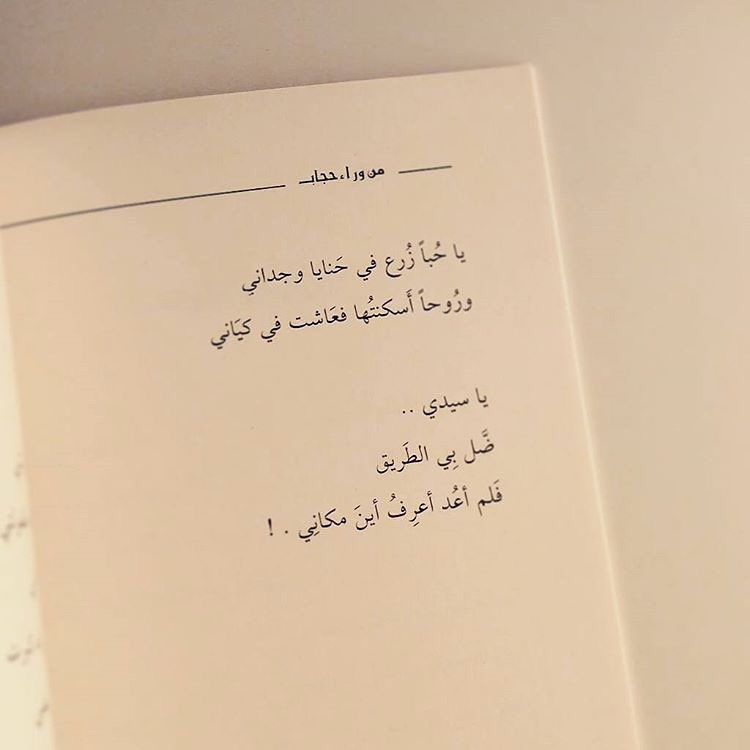 من وراء حجاب
يا حُباً زُرع في حَنايا وجداني
ورُوحاً أَسكنتُها فعَاشت في كيَاني
يا سيدي ..
ضَّل بِي الطَريق
فَلم أعُد أعرِفُ أينَ مكانِي . !